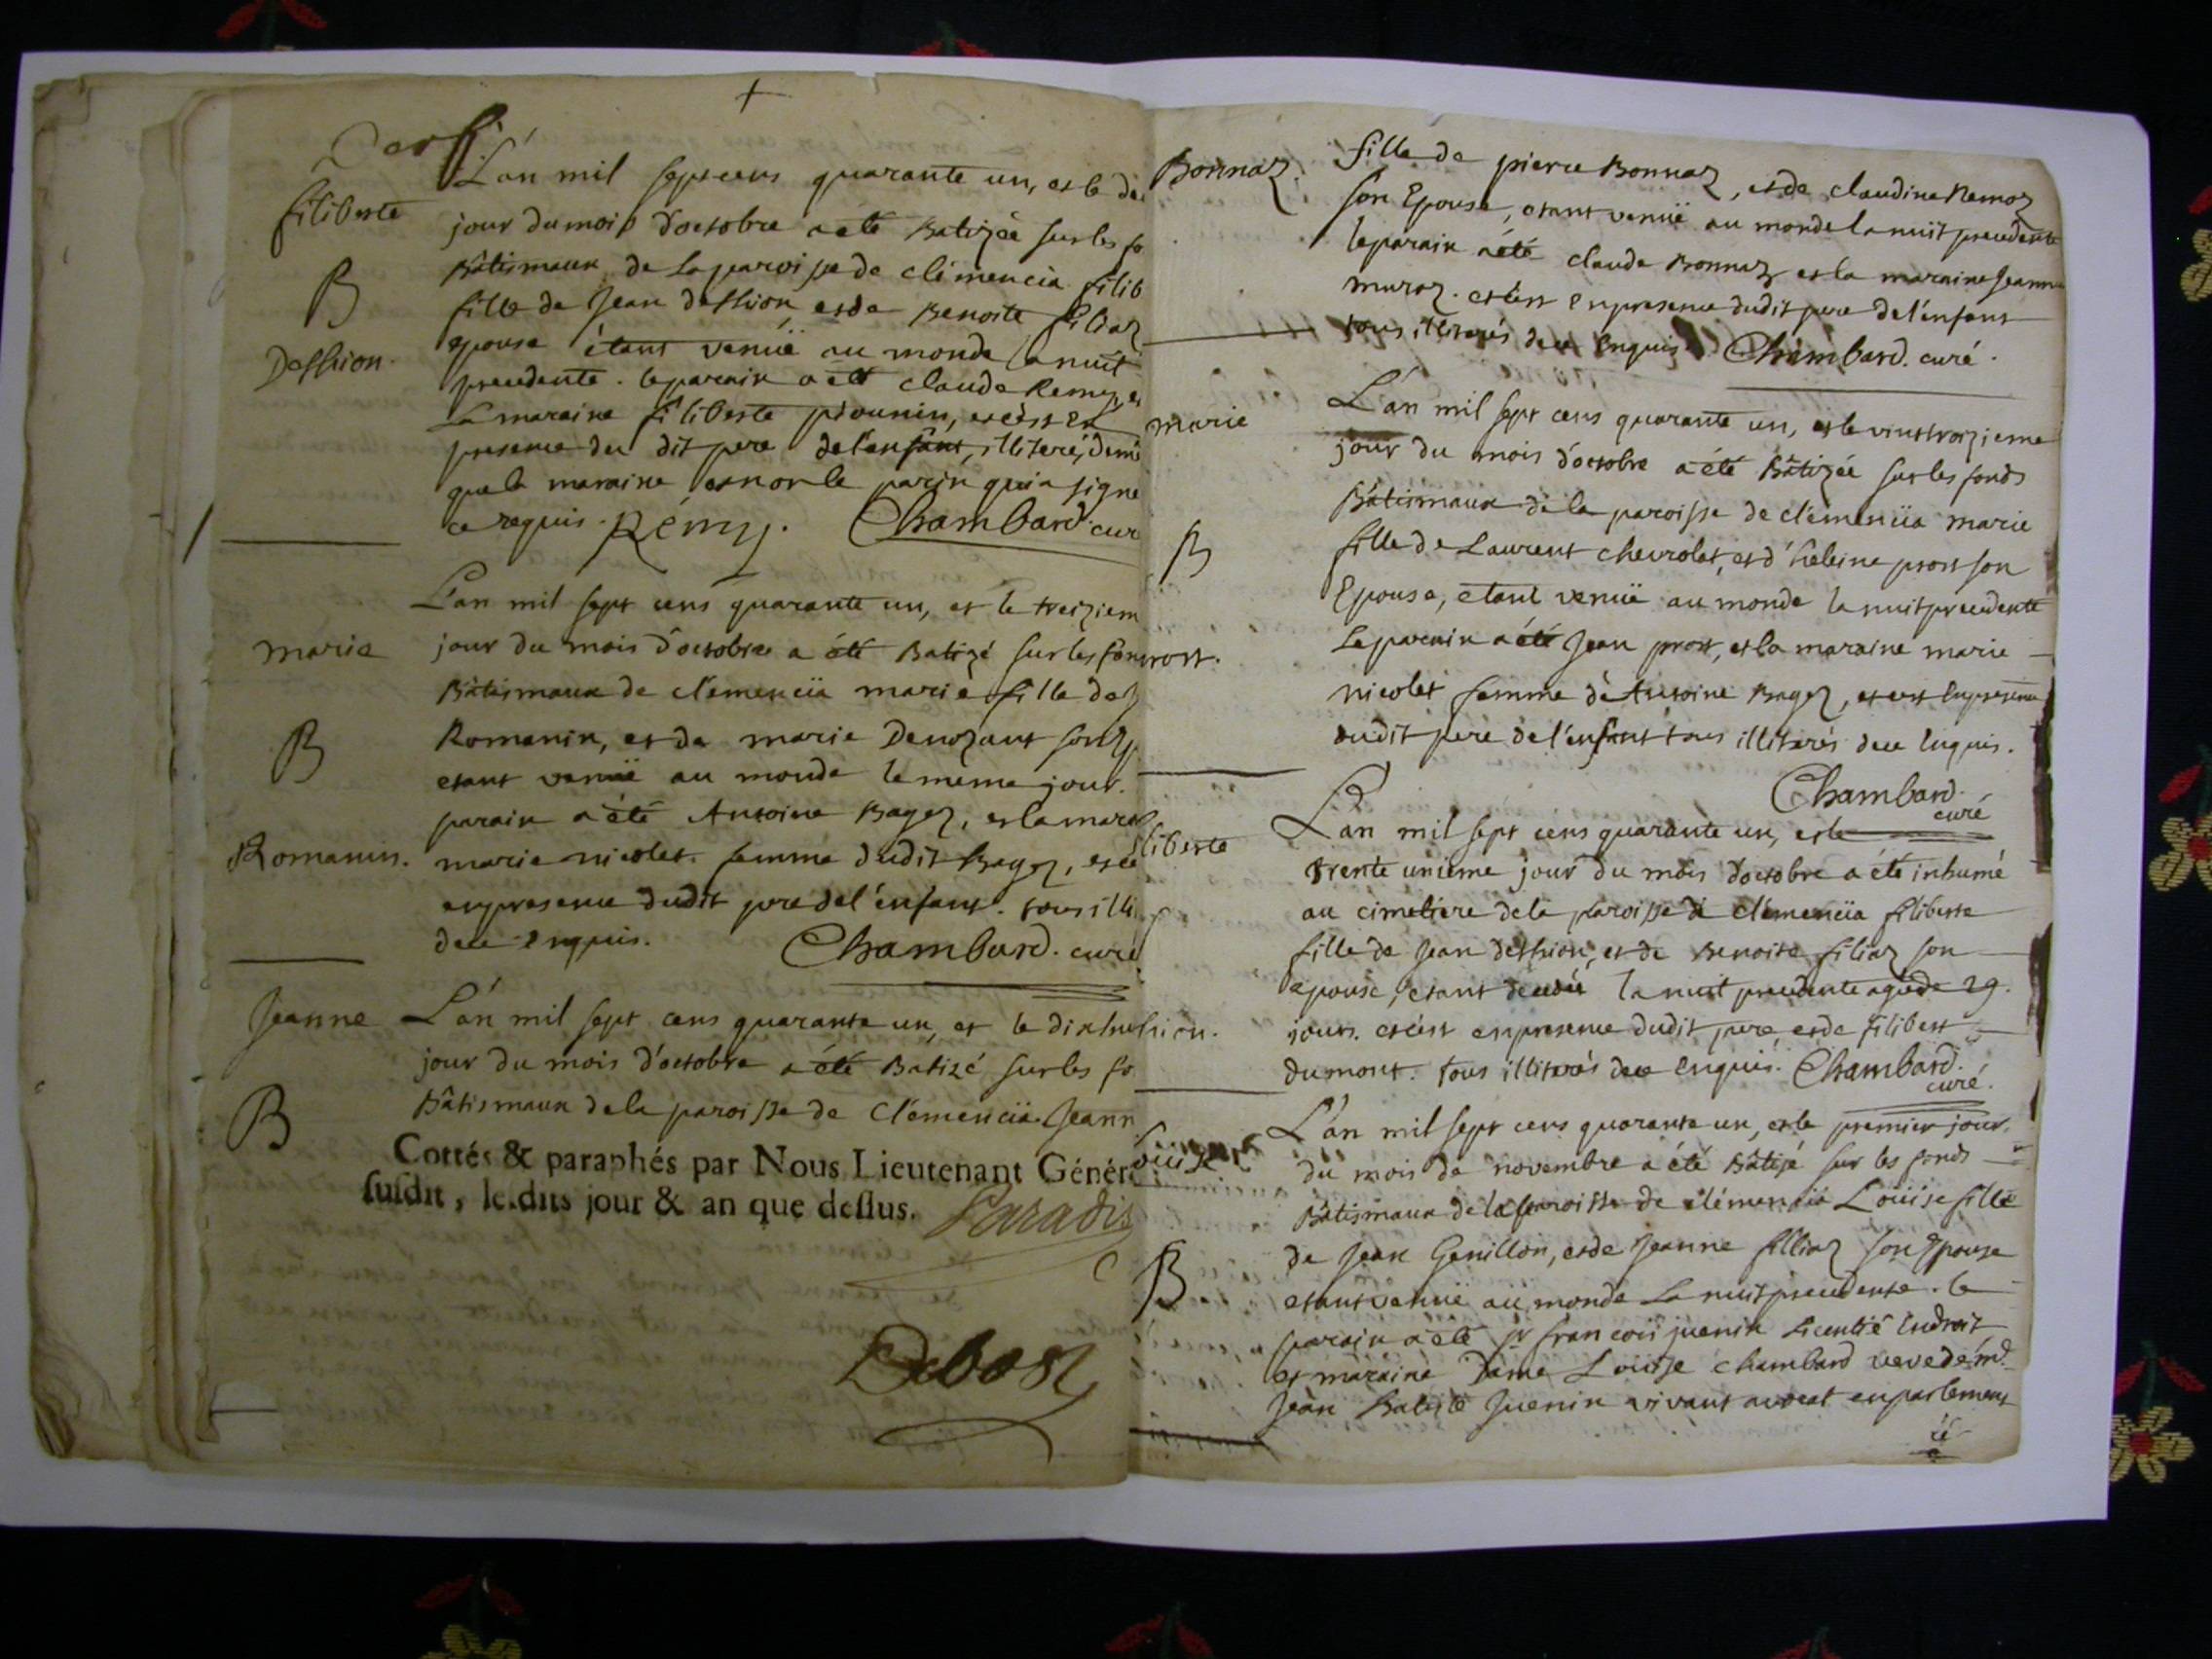 filiberte
B
Desthion.
L'an mil sept cens quarante un, et le de
jour du mois d'octobre a été Batizée sur les fo
Bâtismaux de la paroisse de clémencia filib
fille de Jean desthion et de Benoite filiaz
epouse étant venüe au monde la nuit
precedente. le parain a été claude Remy, et
La maraine filiberte piounin, et c'est en
presence du dit pere de l'enfant, illiteré, de mê
que la maraine et non le parin qui a signe
ce requis. Rémy. Chambard. cur
marie
B
Romanin.
L'an mil sept cens quarante un, et le treiziem
jour du mois d'octobre a été Batizé sur les fon
Bâtismaux de clemenciia marie fille de
Romanin, et de marie Denozant son ep
etant venüe au monde le meme jour.
parain a été Antoine Bagez, et la mare
marie nicolet. femme dudit Bagez, et ce
en presence dudit pere de l'énfant. tous illi
de ce enquis. Chambard. curé
Jeanne
B
L'án mil sept cens quarante un, et le dixhu
jour du mois d'octobre a été Batizé sur les fo
Bâtismaux de la paroisse de Clémenciia Jeann
Cottés & paraphés par Nous Lieutenant Génér
susdit, lesdits jour & an que dessus. Paradis
Debost
Bonnaz.
fille de pierre Bonnaz, et de claudine Remoz
son Epouse, etant venüe au monde la nuit precedente
le parain a été claude Bonnaz et la maraine Jeanne
muroz. et c'est en presence dudit pere de l'enfant
tous illiterés de ce enquis. Chambard. curé.
marie
B
rost.
L'án mil sept cens quarante un, et le vinttroizieme
jour du mois d'octobre a été Bâtizée sur les fonds
Bâtismaux de la paroisse de clémenciia marie
fille de Laurent chevrolet, et d'heleine prost son
Epouse, etant venüe au monde la nuit precedente
Le parain a été Jean prost, et la maraine marie
nicolet femme d'Antoine Bagez, et c'est en presence
dudit pere de l'enfant tous illiterés de ce enquis.
Chambard.
curé
liberte
hion.
L'an mil sept cens quarante un, et le
trente unieme jour du mois d'octobre a été inhumé
au cimetiere de la paroisse de clémenciia filiberte
fille de Jean desthion, et de Benoite filiaz son
epouse, etant decedée la nuit precedente agée de 29.
jours. et c'est en presence dudit pere, et de filibert
dumont. tous illiterés de ce enquis. Chambard.
curé.
Loüise
B
L'án mil sept cens quarante un, et le premier jour
du mois de novembre a été Bâtizé sur les fonds
Bâtismaux de la paroisse de clémenciia Loüise fille
de Jean Genillon, et de Jeanne filliaz son Epouse
etant venüe au monde La nuit precedente. le
parain a été sr francois juenin Licentié en droit
et maraine Dame Loüise chambard veve de md
Jean Batiste Juenin vivant avocat en parlement